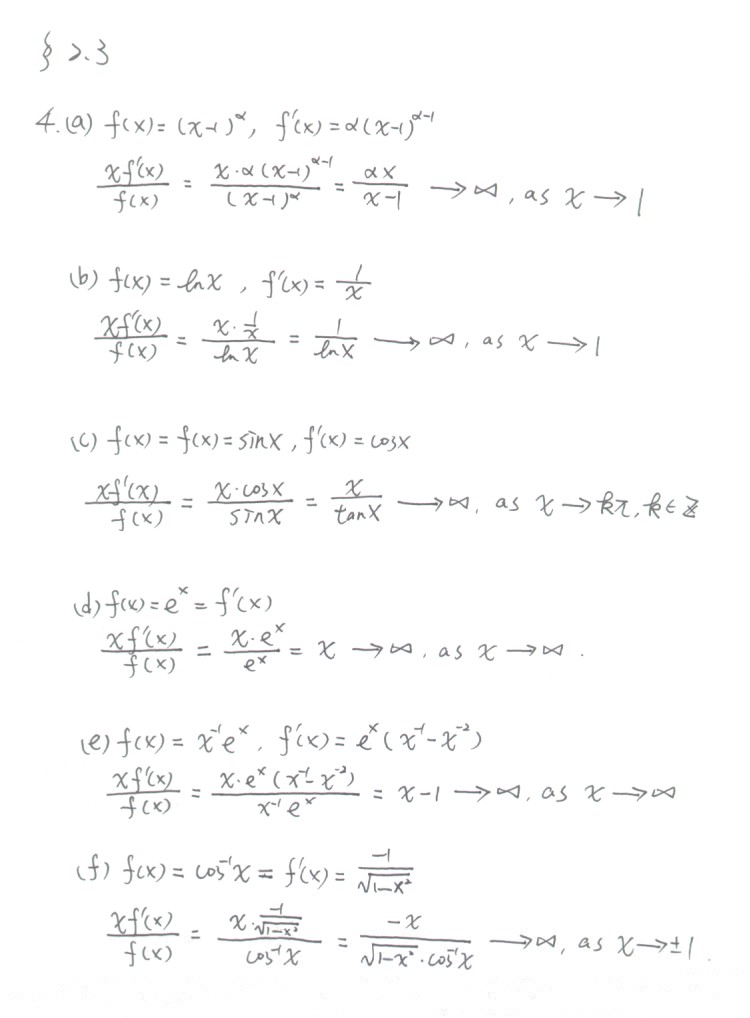 § 2.3
4.(a) f(x) = (x-1)^α, f'(x) = α(x-1)^(α-1)
xf'(x)/f(x) = x·α(x-1)^(α-1)/(x-1)^α = αx/(x-1) → ∞, as x → 1
(b) f(x) = ln x, f'(x) = 1/x
xf'(x)/f(x) = x·(1/x)/ln x = 1/ln x → ∞, as x → 1
(c) f(x) = f(x) = sin x, f'(x) = cos x
xf'(x)/f(x) = x·cos x/sin x = x/tan x → ∞, as x → kπ, k ∈ Z
(d) f(x) = e^x = f'(x)
xf'(x)/f(x) = x·e^x/e^x = x → ∞, as x → ∞.
(e) f(x) = x^-1 e^x, f'(x) = e^x(x^-1 - x^-2)
xf'(x)/f(x) = x·e^x(x^-1 - x^-2)/(x^-1 e^x) = x-1 → ∞, as x → ∞
(f) f(x) = cos^-1 x = f'(x) = -1/√(1-x²)
xf'(x)/f(x) = x·(-1/√(1-x²))/cos^-1 x = -x/(√(1-x²)·cos^-1 x) → ∞, as x → ±1.